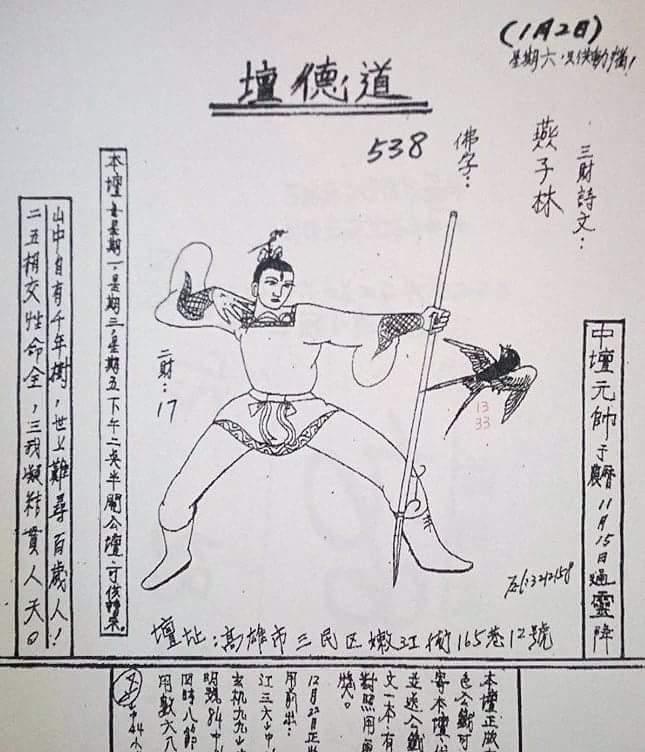 (1月2日)
星期六
道德壇
三財詩文：
燕子林
佛字：
538
中壇元帥于農曆11月15日過靈降
13
33
二財：17
本壇
星期一，星期三，星期五下午二点半開公壇，
山中自有千年樹，世上難尋百歲人！
二五相交性命全，三我凝結貫人天。
壇址：高雄市三民区嫩江街165巷12號
本壇正版
寄本壇
文一本有
對照用
獎。
12月22日正
用前出：
江三六中
玄机九九
明說84中
四時八節
用數六八